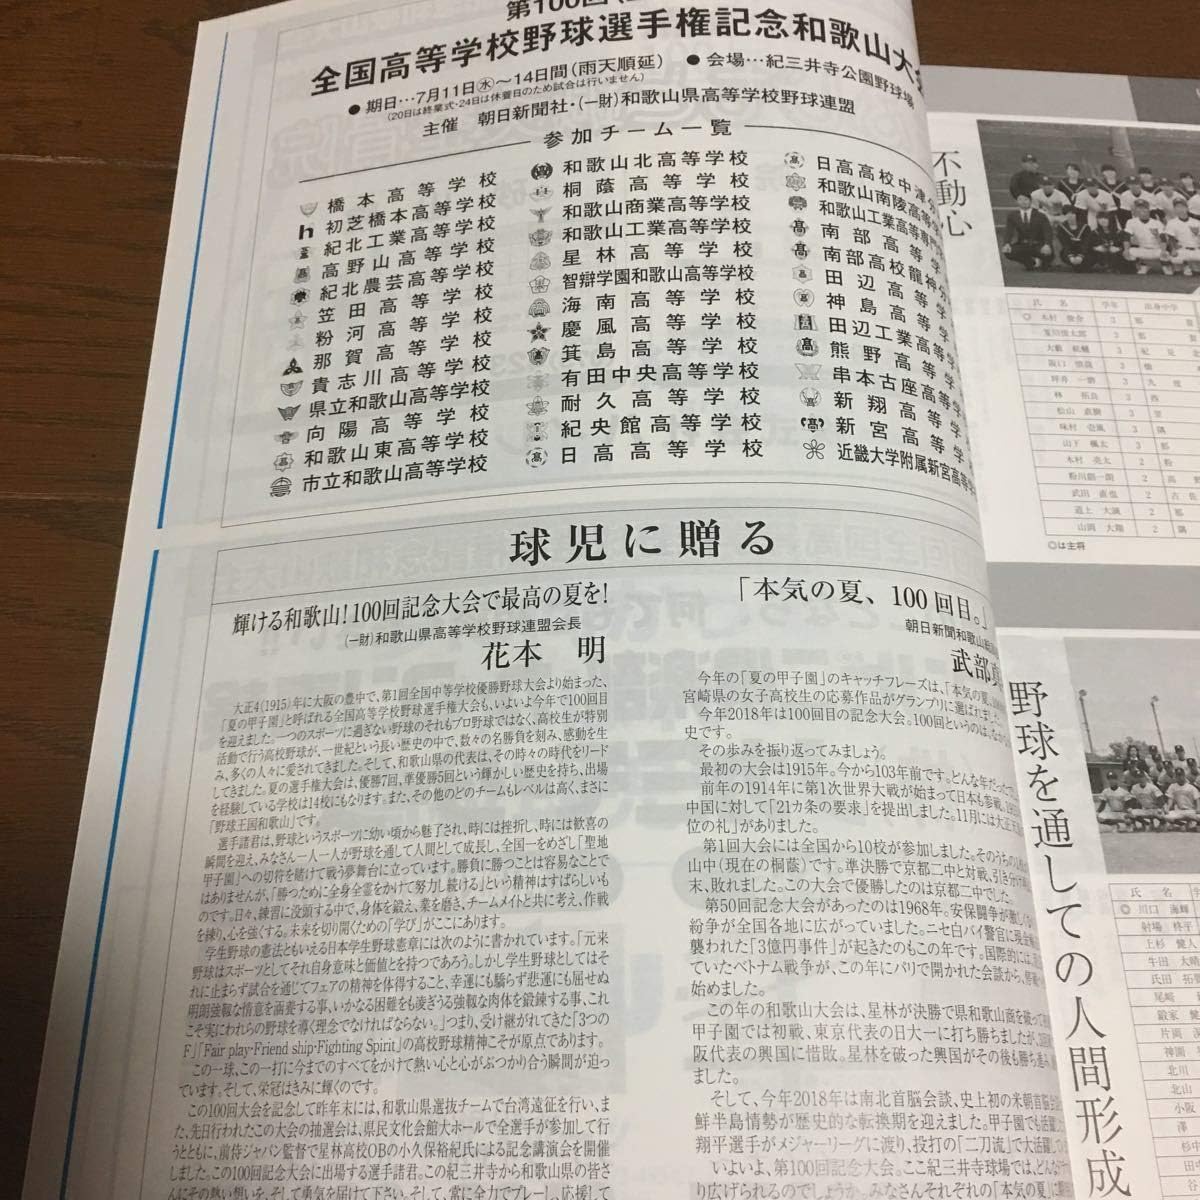 第100回
全国高等学校野球選手権記念和歌山大会
●期日…7月11日㊌～14日間(雨天順延)
●会場…紀三井寺公園野球場
(20日は終業式・24日は休養日のため試合は行いません)
主催 朝日新聞社・(一財)和歌山県高等学校野球連盟
参加チーム一覧
橋本高等学校
初芝橋本高等学校
紀北工業高等学校
高野山高等学校
紀北農芸高等学校
笠田高等学校
粉河高等学校
那賀高等学校
貴志川高等学校
県立和歌山高等学校
向陽高等学校
和歌山東高等学校
市立和歌山高等学校
和歌山北高等学校
桐蔭高等学校
和歌山商業高等学校
和歌山工業高等学校
星林高等学校
智辯学園和歌山高等学校
海南高等学校
慶風高等学校
箕島高等学校
有田中央高等学校
耐久高等学校
紀央館高等学校
日高高等学校
日高高校中津分
和歌山南陵高等学
和歌山工業高等専門
南部高等学
南部高校龍神分
田辺高等学
神島高等学
田辺工業高等学
熊野高等学
串本古座高等学
新翔高等学
新宮高等学
近畿大学附属新宮高等学
球児に贈る
輝ける和歌山!100回記念大会で最高の夏を!
(一財)和歌山県高等学校野球連盟会長
花本 明
大正4(1915)年に大阪の豊中で、第1回全国中等学校優勝野球大会より始まった、
「夏の甲子園」と呼ばれる全国高等学校野球選手権大会も、いよいよ今年で100回目
を迎えました。一つのスポーツに過ぎない野球のそれもプロ野球ではなく、高校生が特別
活動で行う高校野球が、一世紀という長い歴史の中で、数々の名勝負を刻み、感動を生
み、多くの人々に愛されてきました。そして、和歌山県の代表は、その時々の時代をリード
してきました。夏の選手権大会は、優勝7回、準優勝5回という輝かしい歴史を持ち、出場
を経験している学校は14校にもなります。また、その他のどのチームもレベルは高く、まさに
「野球王国和歌山」です。
選手諸君は、野球というスポーツに幼い頃から魅了され、時には挫折し、時には歓喜の
瞬間を迎え、みなさん一人一人が野球を通して人間として成長し、全国一をめざし「聖地
甲子園」への切符を賭けて戦う夢舞台に立っています。勝負に勝つことは容易なことで
はありませんが、「勝つために全身全霊をかけて努力し続ける」という精神はすばらしいも
のです。日々、練習に没頭する中で、身体を鍛え、業を磨き、チームメイトと共に考え、作戦
を練り、心を強くする。未来を切り開くための「学び」がここにあります。
学生野球の憲法ともいえる日本学生野球憲章には次のように書かれています。「元来
野球はスポーツとしてそれ自身意味と価値とを持つであろう。しかし学生野球としてはそ
れに止まらず試合を通じてフェアの精神を体得すること、幸運にも驕らず悲運にも屈せぬ
明朗強靱な情意を涵養する事、いかなる困難をも凌ぎうる強靱な肉体を鍛錬する事、これ
こそ実にわれらの野球を導く理念でなければならない。」つまり、受け継がれてきた「3つの
F」「Fair play・Friend ship・Fighting Spirit」の高校野球精神こそが原点であります。
この一球、この一打に今までのすべてをかけて熱い心と心がぶつかり合う瞬間が迫っ
ています。そして、栄冠はきみに輝くのです。
この100回大会を記念して昨年末には、和歌山県選抜チームで台湾遠征を行い、ま
た、先日行われたこの大会の抽選会は、県民文化会館大ホールで全選手が参加して行
うとともに、前侍ジャパン監督で星林高校OBの小久保裕紀氏による記念講演会を開催し
ました。この100回記念大会に出場する選手諸君。この紀三井寺から和歌山県の皆さ
んにその熱い想いを、そして勇気を届けて下さい。そして、常に全力でプレーし、応援して
「本気の夏、100回目。」
朝日新聞和歌山総
武部
今年の「夏の甲子園」のキャッチフレーズは、「本気の夏、
宮崎県の女子高校生の応募作品がグランプリに選ばれました。
今年2018年は100回目の記念大会。100回というのは、
史です。
その歩みを振り返ってみましょう。
最初の大会は1915年。今から103年前です。どんな年だった
前年の1914年に第1次世界大戦が始まって日本も参戦。
中国に対して「21カ条の要求」を提出しました。11月には大正天
位の礼」がありました。
第1回大会には全国から10校が参加しました。そのうちの1
山中(現在の桐蔭)です。準決勝で京都二中と対戦、引き分け
末、敗れました。この大会で優勝したのは京都二中でした。
第50回記念大会があったのは1968年。安保闘争が激しく
紛争が全国各地に広がっていました。ニセ白バイ警官に現金
襲われた「3億円事件」が起きたのもこの年です。国際的には、
ていたベトナム戦争が、この年にパリで開かれた会談から、
始めました。
この年の和歌山大会は、星林が決勝で県和歌山商を破って
甲子園では初戦、東京代表の日大一に打ち勝ちましたが、
阪代表の興国に惜敗。星林を破った興国がその後も勝ち進み、
ました。
そして、今年2018年は南北首脳会談、史上初の米朝首脳
鮮半島情勢が歴史的な転換期を迎えました。甲子園でも活躍し
翔平選手がメジャーリーグに渡り、投打の「二刀流」で大活躍して
いよいよ、第100回記念大会。ここ紀三井寺球場では、どんな
り広げられるのでしょうか。みなさんそれぞれの「本気の夏」に
不動心
氏 名 学年 出身中学
◎は主将
野球を通しての人間形成
氏 名